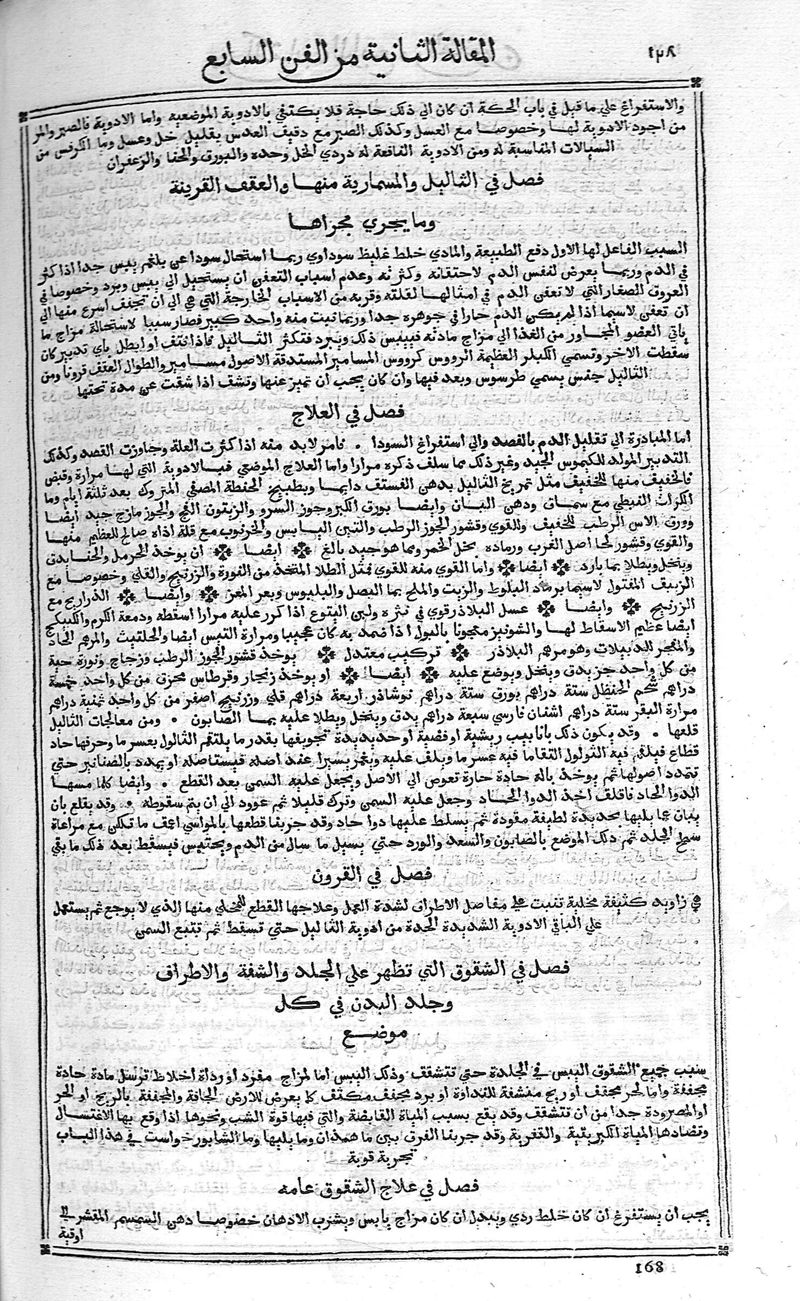 ١٢٨
المقالة الثانية من الفن السابع
والاستفراغ علي ما قيل في باب الحكة ان كان الي ذلك حاجة فلا يكتفي بالادوية الموضعيه واما الادوية فالصبر والمر
من اجود الادوية لها وخصوصا مع العسل وكذلك الصبر مع دقيف العدس بقليل خل وعسل وما الكرفس من
السيالات المناسبة له ومن الادوية النافعة له دردي الخل وحده والبورق والحنا والزعفران
فصل في الثاليل والمسمارية منها والعقف القرينة
وما يجري مجراها
السبب الفاعل لها الاول دفع الطبيعة والمادي خلط غليظ سوداوي ربما استحال سودا عن بلغم يبس جدا اذا كثر
في الدم وربما يعرض لنفس الدم لاحتقانه وكثرته وعدم اسباب التعفن ان يستحيل الي يبس وبرد وخصوصا في
العروق الصغار التي لا تعفن الدم في امثالها لقلته وقربه من الاسباب الخارجة التي هي الي ان تجفف اسرع منها الي
ان تعفن لاسيما اذا لم يكن الدم حارا في جوهره جدا وربما نبت منه واحد كبير فصار سببا لاستحالة مزاج ما
ياتي العضو المجاور من الغذا الي مزاج مادته فييبس ذلك ويبرد فتكثر الثاليل فاذا نتف او ابطل باي تدبير كان
سقطت الاخر وتسمي الكبار العظيمة الرووس كرووس المسامير المستدقة الاصول مسامير والطوال العقف قرونا ومن
الثاليل جنس يسمي طرسوس ويعد فيها وان كان يجب ان تميز عنها وتشف اذا شقت عن مدة تحتها
فصل في العلاج
اما المبادرة الي تقليل الدم بالفصد والي استفراغ السودا . فامر لابد منه اذا كثرت العلة وجاوزت القصد وكذلك
التدبير المولد للكيموس الجيد وغير ذلك مما سلف ذكره مرارا واما العلاج الموضعي فبالادوية التي لها مرارة وقبض
فالخفيف منها للخفيف مثل تمريخ الثاليل بدهن الفستف دايما وبطبيخ الحنطة المصفي المتروك بعد ثلثة ايام وما
الكراث النبطي مع سماق ودهن البان وايضا بورق الكبر وجوز السرو والزيتون الفج والجوز مازج جيد ايضا
وورق الاس الرطب للخفيف وللقوي وقشور الجوز الرطب والتين اليابس والخرنوب مع قلة اذاه صالح للعظيم منها
والقوي وقشور لحا اصل الغرب ورماده بخل الخمر ومما هو جيد بالغ ايضا ان يوخذ الحرمل والحنا يدق
وينخل ويطلا بما بارد ايضا واما القوي منه للقوي فمثل الطلا المتخذ من النورة والزرنيخ والقلي وخصوصا مع
الزيبف المقتول لاسيما برماد البلوط والزيت والملح بما البصل والبلبوس وبعر المعز وايضا الذراريح مع
الزرنيخ وايضا عسل البلاذر قوي في نثره ولبن اليتوع اذا كرر عليه مرارا اسقطه ودمعة الكرم والكبيكج
ايضا عظيم الاسقاط لها والشونيز معجونا بالبول اذا ضمد به كان عجيبا ومرارة التيس ايضا والحلتيت والمرهم الحاد
والمفجر للدبيلات وهو مرهم البلاذر تركيب معتدل يوخذ قشور الجوز الرطب وزجاج ونورة حية
من كل واحد جز يدق وينخل ويوضع عليه ايضا او يوخذ زنجار وقرطاس محرق من كل واحد خمسة
دراهم شحم الحنظل ستة دراهم بورق ستة دراهم نوشادر اربعة دراهم قلي وزرنيخ اصفر من كل واحد ثمنية دراهم
مرارة البقر ستة دراهم اشنان فارسي سبعة دراهم يدق وينخل ويطلا عليه بما الصابون . ومن معالجات الثاليل
قلعها . وقد يكون ذلك بانابيب ريشية او فضية او حديدية تجويفها بقدر ما يلتقم الثالول بعسر ما وحرفها حاد
قطاع فيلقي فيه الثولول التقاما فيه عسر ما ويلف عليه ويغمز يسيرا عند اصله فيستاصله او يمدد بالصنانير حتي
تتمدد اصولها ثم يوخذ باله حادة حارة تغوص الي الاصل ويجعل عليه السمن بعد القطع . وايضا كلما مسها
الدوا الحاد فاقلف اخذ الدوا الحاد وجعل عليه السمن وترك قليلا ثم عوود الي ان يتم سقوطه . وقد يقلع بان
يبان عما يليها بحديدة لطيفة مقودة ثم يسلط عليها دوا حاد وقد جربنا قطعها بالمواسي اعمف ما تكن مع مراعاة
سطح الجلد ثم ذلك الموضع بالصابون والسعد والورد حتي يسيل ما سال من الدم ويحتبس فيسقط بعد ذلك ما بقي
فصل في القرون
هي زاويد كثيفة مخلبة تنبت علي مفاصل الاطراف لشدة العمل وعلاجها القطع للمخلي منها الذي لا يوجع ثم يستعمل
علي الباقي الادوية الشديدة الحدة من ادوية الثاليل حتي تسقط ثم تتبع السمن
فصل في الشقوق التي تظهر علي الجلد والشفة والاطراف
وجلد البدن في كل
موضع
سبب جميع الشقوق اليبس في الجلدة حتي تتشقف وذلك اليبس اما لمزاج مفرد او رداة اخلاط ترسل مادة حادة
مجففة واما لحر مجفف او ريح منشفة للنداوة او برد مجفف مكثف كما يعرض للارض الجافة والمجففة بالريح او الحر
او المصرودة جدا من ان تتشقف وقد يقع بسبب المياة القابضة والتي فيها قوة الشب ونحوها اذا وقع بها الاغتسال
وتضادها المياة الكبريتية والقفرية وقد جربنا الفرق بين ما همدان وما يليها وما الشابورخواست في هذا الباب
تجربة قوية
فصل في علاج الشقوق عامه
يجب ان يستفرغ ان كان خلط ردي ويبدل ان كان مزاج يابس ويشرب الادهان خصوصا دهن السمسم المقشر الي
اوقية
168